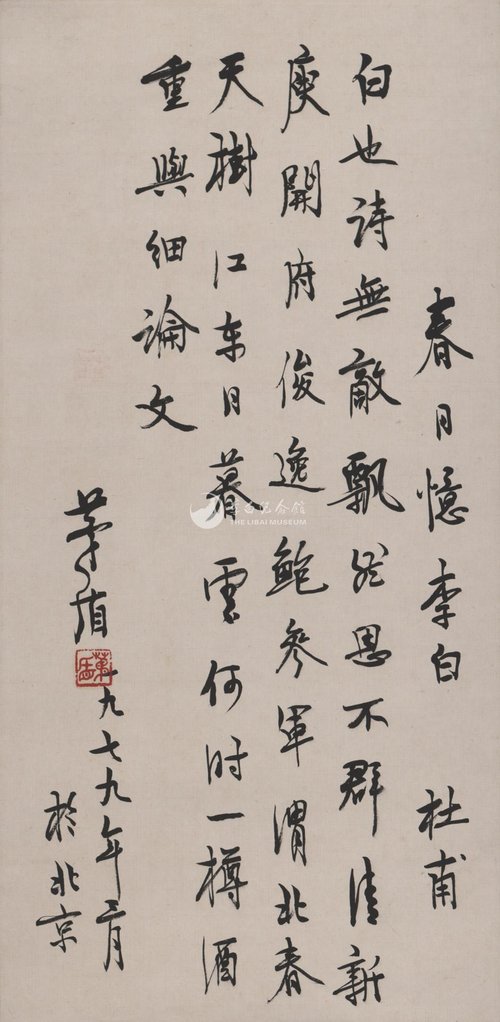 春日憶李白 杜甫
白也詩無敵飄然思不群清新
庾開府俊逸鮑參軍渭北春
天樹江东日暮雲何时一樽酒
重與細論文
茅盾
一九七九年三月
於北京
李白纪念馆
THE LIBAI MUSEUM